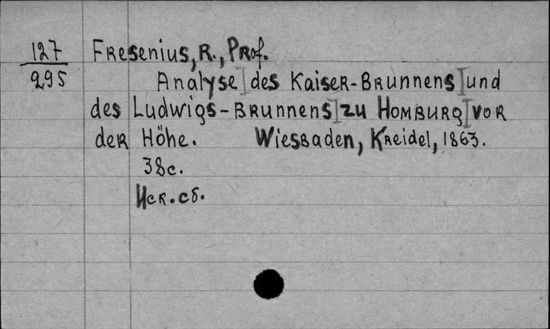 127
295
Fresenius, R., Prof.
Analyse des Kaiser-Brunnens und
des Ludwigs-Brunnens zu Homburg vor
der Höhe. Wiesbaden, Kreidel, 1863.
38c.
Иск. сб.